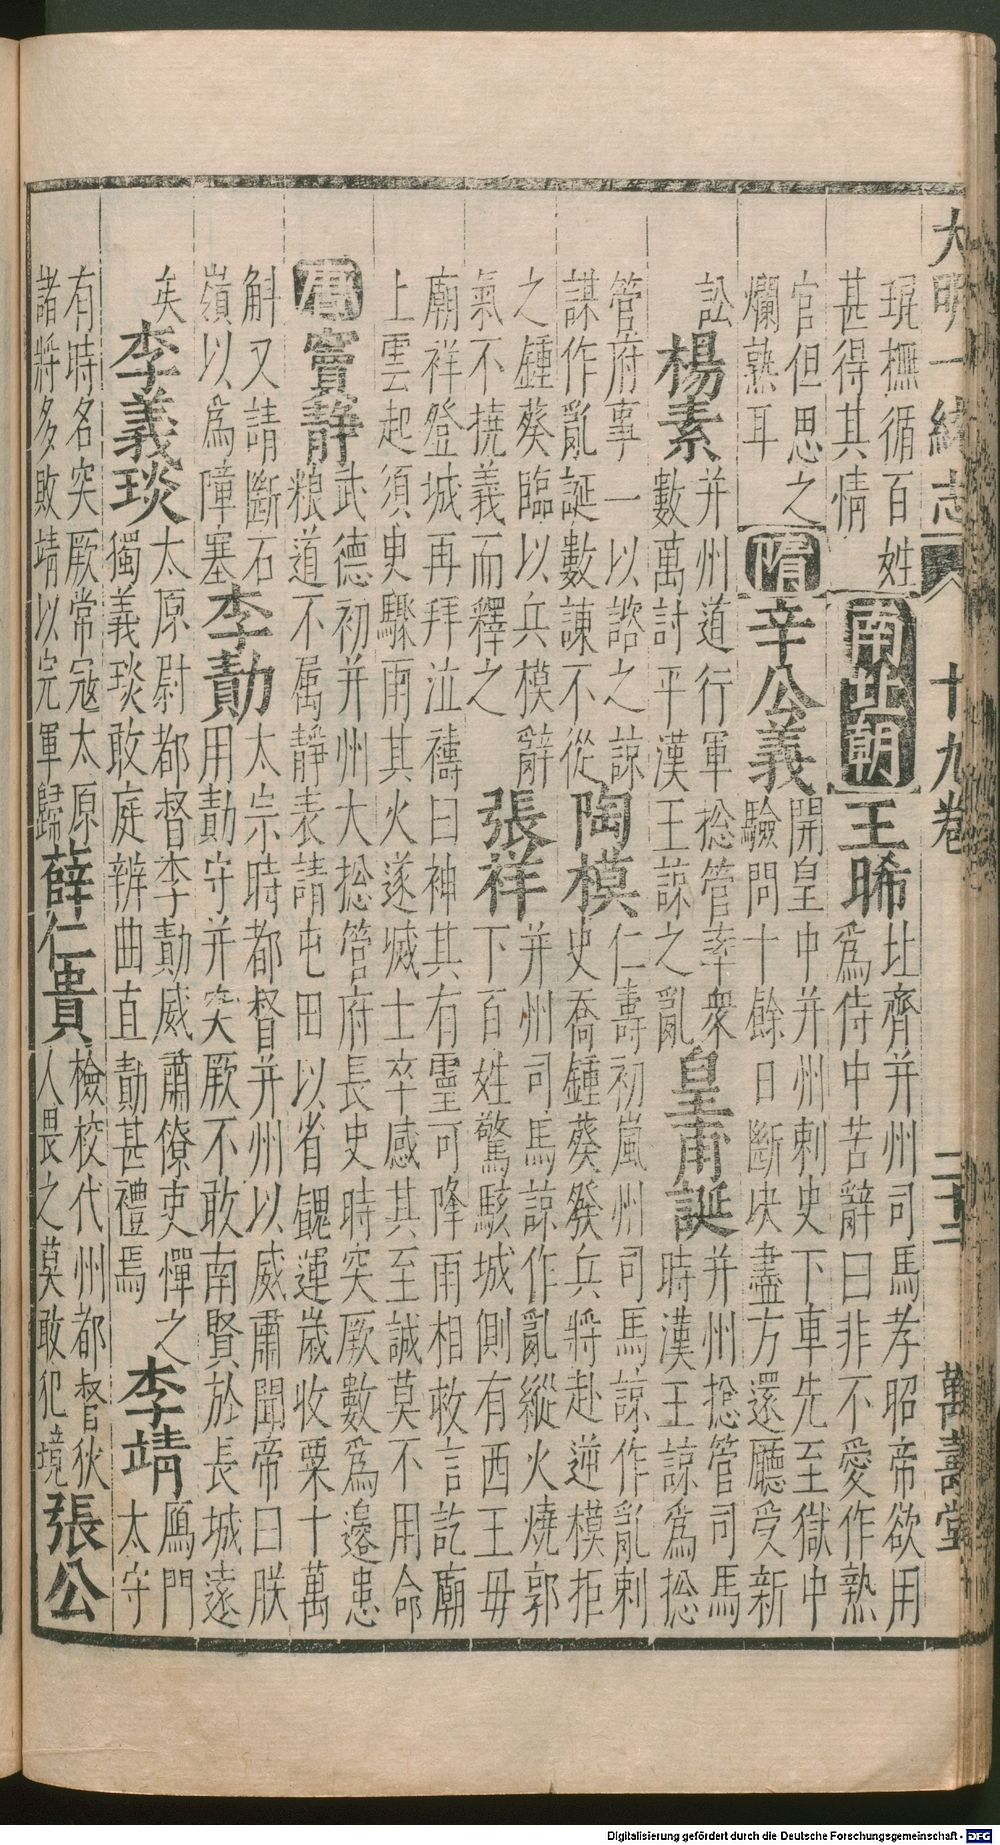 大明一統志 十九卷 二十二 萬壽堂
琨撫循百姓
甚得其情
南北朝
王晞
北齊并州司馬孝昭帝欲用
為侍中苦辭曰非不愛作熟
官但思之
爛熟耳
隋
辛公義
開皇中并州刺史下車先至獄中
驗問十餘日斷决盡方還廳受新
訟
楊素
并州道行軍揔管率衆
數萬討平漢王諒之亂
皇甫誕
并州揔管司馬
時漢王諒為揔
管府事一以諮之諒
謀作亂誕數諫不從
陶模
仁壽初嵐州司馬諒作亂刺
史喬鍾葵發兵將赴逆模拒
之鍾葵臨以兵模辭
氣不撓義而釋之
張祥
并州司馬諒作亂縱火燒郭
下百姓驚駭城側有西王母
廟祥登城再拜泣禱曰神其有靈可降雨相救言訖廟
上雲起須臾驟雨其火遂滅士卒感其至誠莫不用命
唐
竇静
武德初并州大揔管府長史時突厥數為邊患
粮道不属靜表請屯田以省餽運歲收粟十萬
斛又請斷石
嶺以為障塞
李勣
太宗時都督并州以威肅聞帝曰朕
用勣守并突厥不敢南賢於長城遠
矣
李義琰
太原尉都督李勣威肅僚吏憚之
獨義琰敢庭辨曲直勣甚禮焉
李靖
鴈門
太守
有時名突厥常寇太原
諸將多敗靖以完軍歸
薛仁貴
檢校代州都督狄
人畏之莫敢犯境
張公
Digitalisierung gefördert durch die Deutsche Forschungsgemeinschaft - DFG